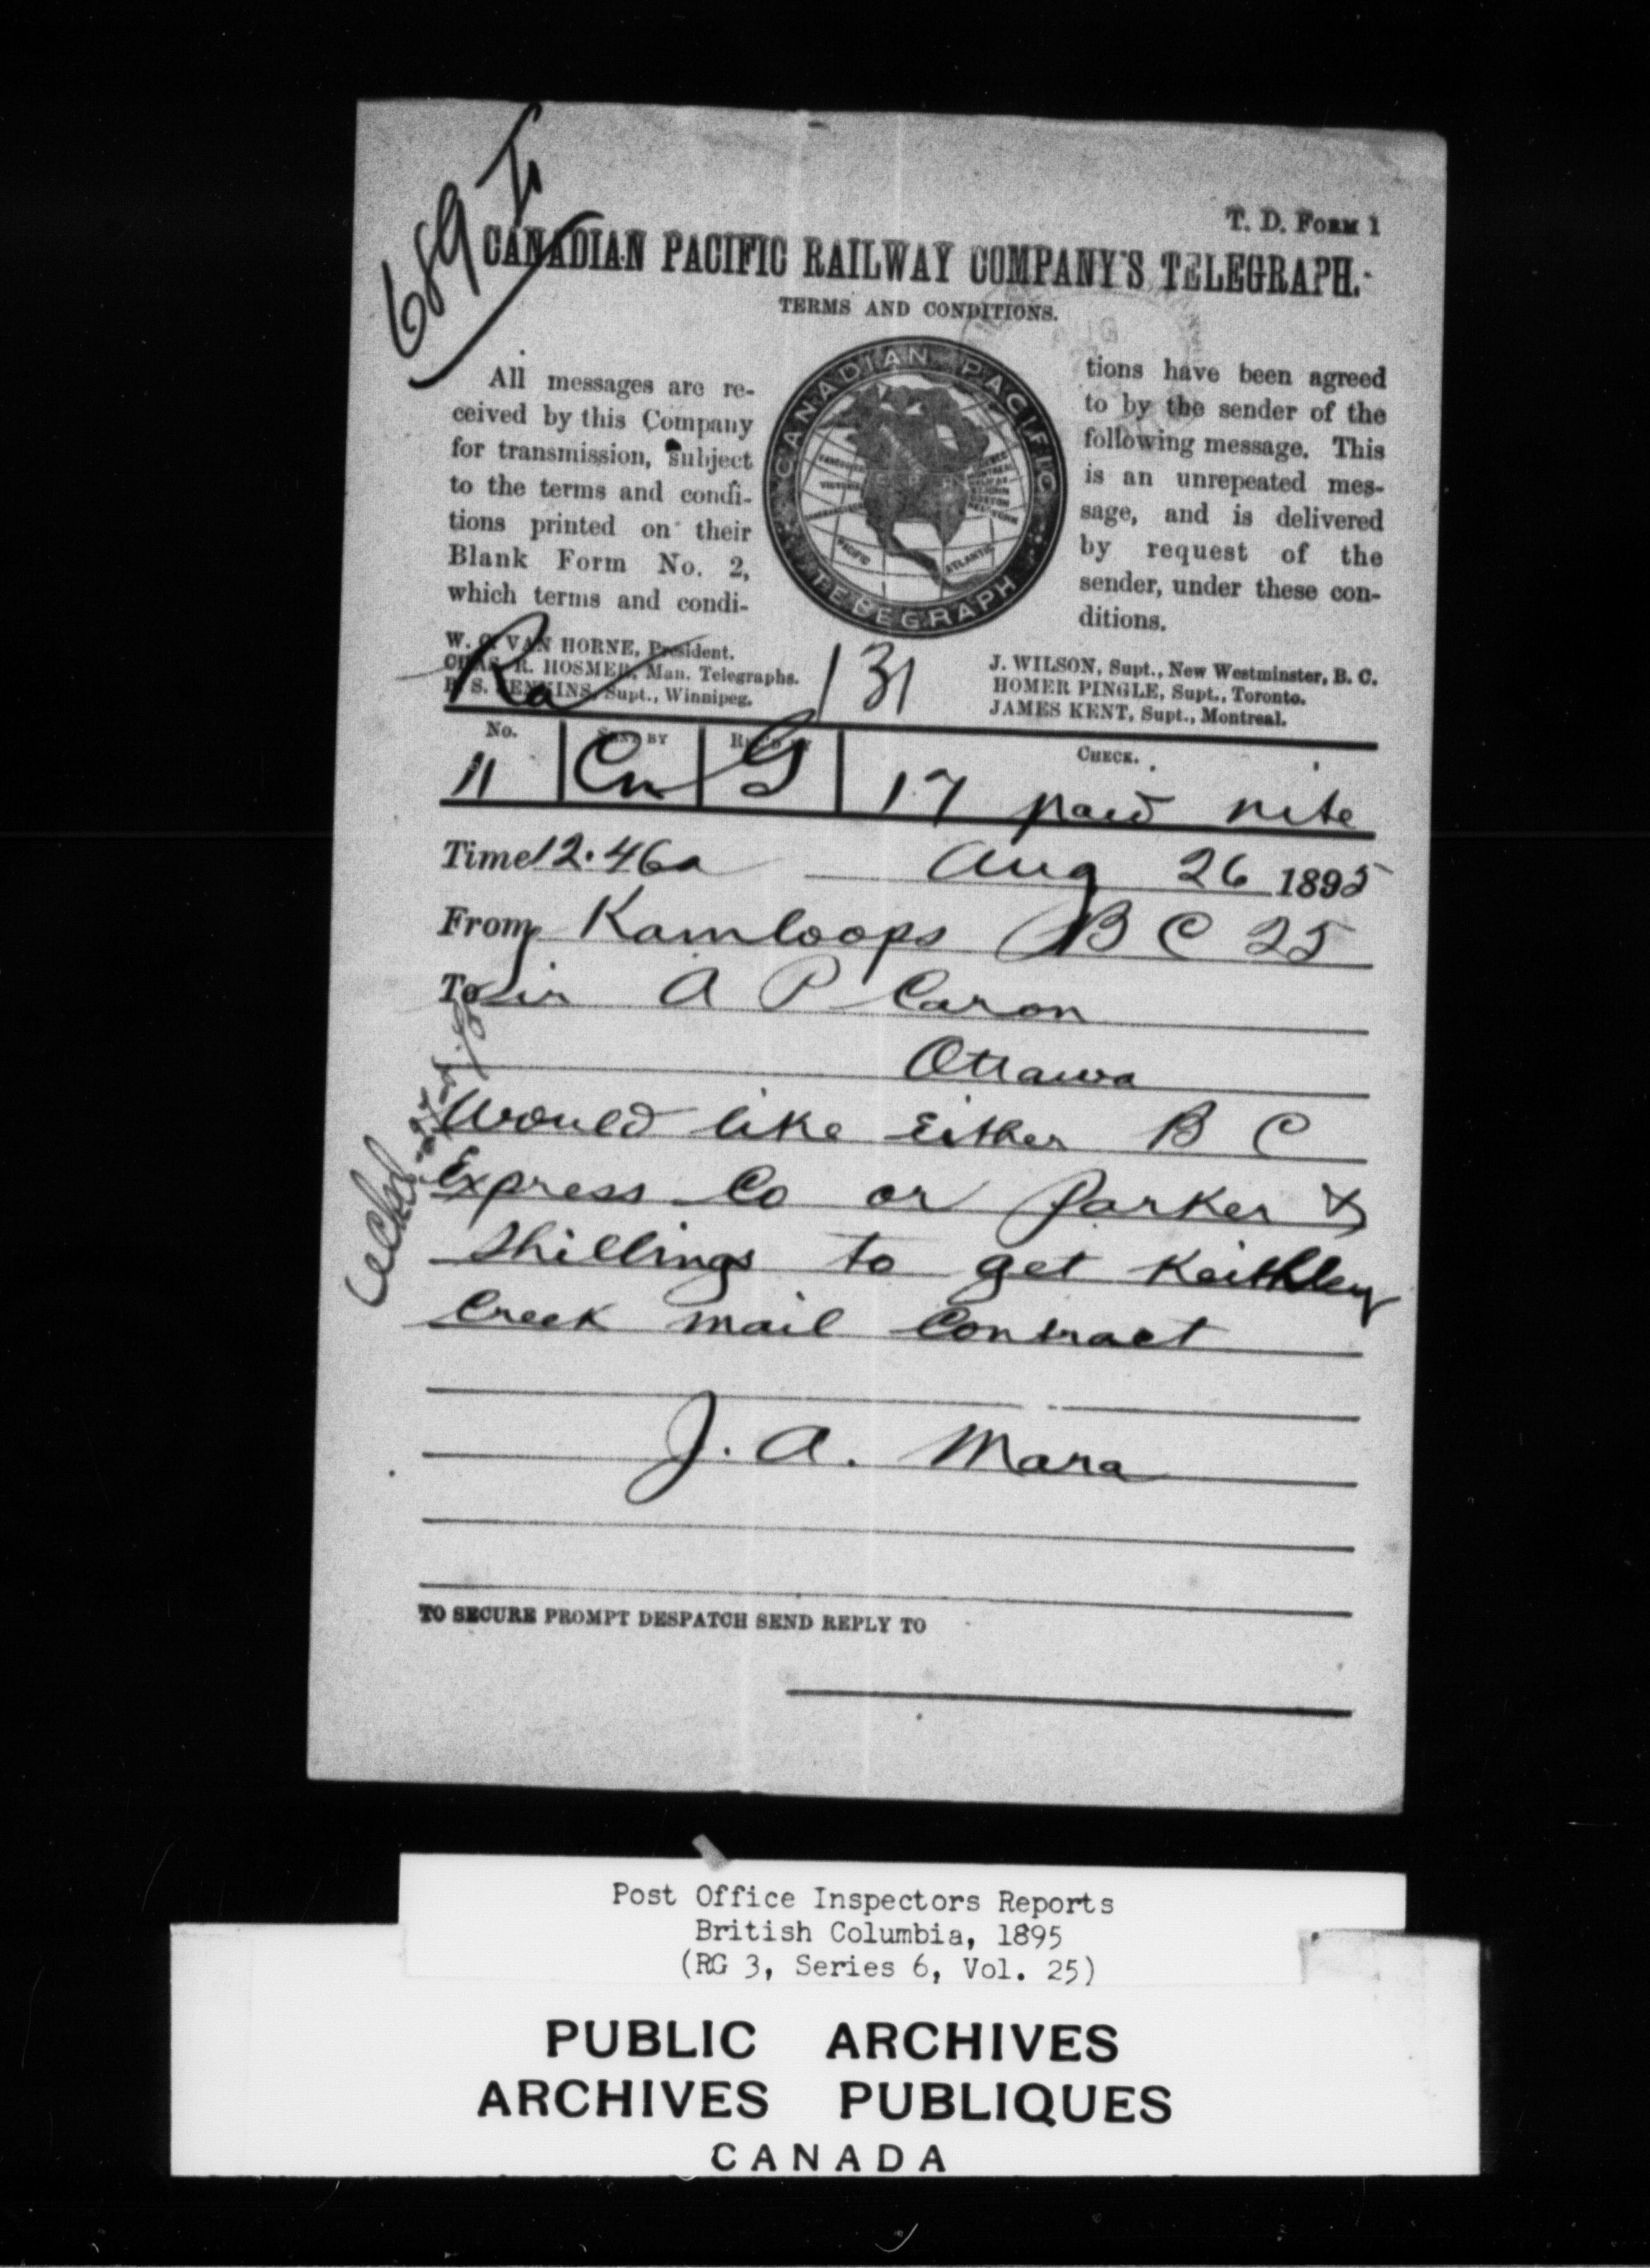 689
T. D. FORM 1
CANADIAN PACIFIC RAILWAY COMPANY'S TELEGRAPH.
TERMS AND CONDITIONS.
All messages are re-
ceived by this Company
for transmission, subject
to the terms and condi-
tions printed on their
Blank Form No. 2,
which terms and condi-
CANADIAN PACIFIC
TELEGRAPH
PACIFIC
ATLANTIC
tions have been agreed
to by the sender of the
following message. This
is an unrepeated mes-
sage, and is delivered
by request of the
sender, under these con-
ditions.
W. C. VAN HORNE, President.
CHAS. R. HOSMER, Man. Telegraphs.
B. S. JENKINS, Supt., Winnipeg.
Ra
131
J. WILSON, Supt., New Westminster, B. C.
HOMER PINGLE, Supt., Toronto.
JAMES KENT, Supt., Montreal.
No. SENT BY REC'D BY CHECK.
11 Cn G 17 paid nite
Time 12.46a Aug 26 1895
From Kamloops B C 25
To Sir A P Caron
Ottawa
Would like Either B C
Express Co or Parker &
Shillings to get Keithley
Creek mail Contract
J. A. Mara
TO SECURE PROMPT DESPATCH SEND REPLY TO
Post Office Inspectors Reports
British Columbia, 1895
(RG 3, Series 6, Vol. 25)
PUBLIC ARCHIVES
ARCHIVES PUBLIQUES
CANADA